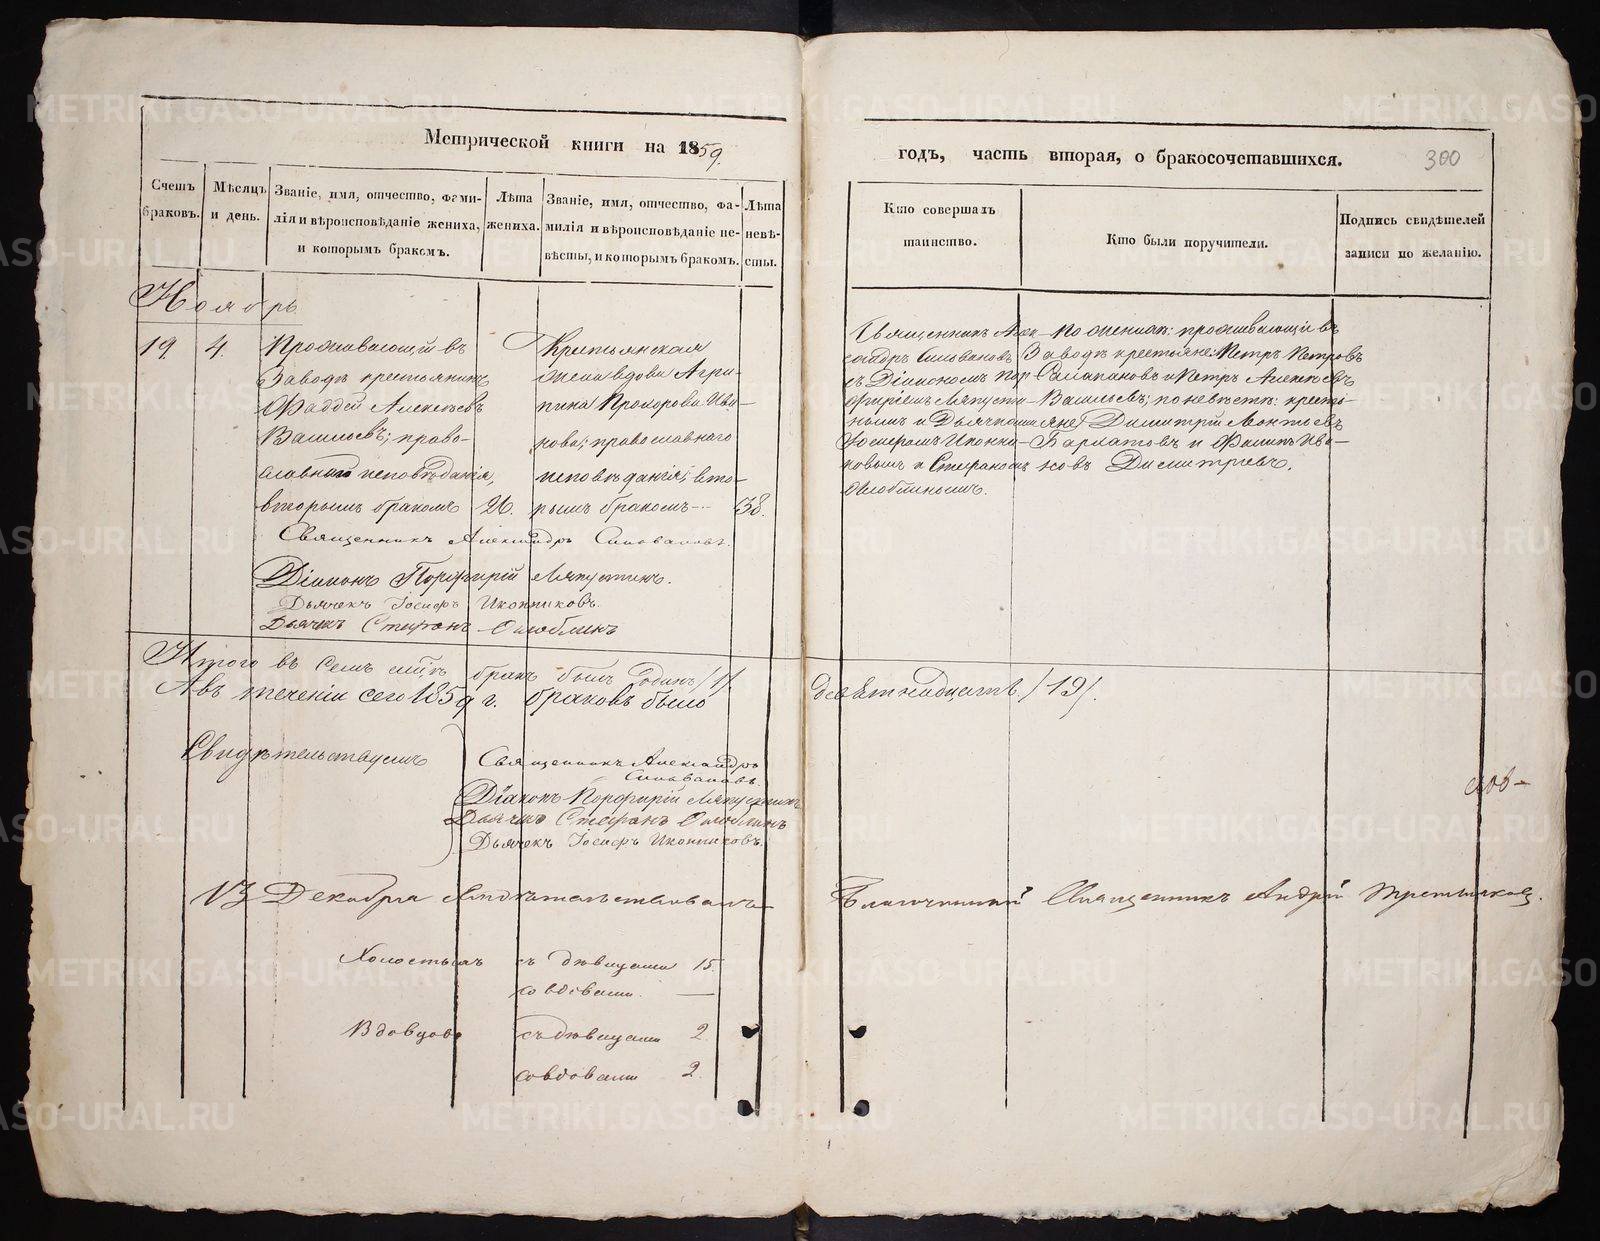 Метрической книги на 1859.
годъ, часть вторая, о бракосочетавшихся.
300
Счетъ браковъ.
Мѣсяцъ и день.
Званіе, имя, отчество, фами-
лія и вѣроисповѣданіе жениха,
и которымъ бракомъ.
Лѣта
жениха.
Званіе, имя, отчество, фа-
милія и вѣроисповѣданіе не-
вѣсты, и которымъ бракомъ.
Лѣта
невѣ-
сты.
Кто совершалъ
таинство.
Кто были поручители.
Подпись свидѣтелей
записи по желанію.
Ноябрь
19
4.
Проживающій въ
Заводѣ крестьянинъ
Фаддей Алексѣевъ
Васильевъ; право-
славнаго исповѣданія,
вторымъ бракомъ
26.
Крестьянская
жена вдова Агри-
пина Прохорова Ива-
нова; православнаго
исповѣданія; вто-
рымъ бракомъ
38.
Священникъ Алек-
сандръ Сильвановъ
съ Діакономъ Пор-
фиріемъ Ляпусти-
нымъ и Дьячками
Іосифомъ Иконни-
ковымъ и Стефаномъ
Оглоблинымъ.
По женихѣ: проживающіе въ
Заводѣ крестьяне: Петръ Петровъ
и Петръ Алексѣевъ
Васильевъ; по невѣстѣ: кресть-
яне Димитрій
и Филипъ Ива-
новъ Димитріевъ.
Священникъ Александръ Сильвановъ.
Діаконъ Порфирій Ляпустинъ.
Дьячекъ Іосифъ Иконниковъ.
Дьячекъ Стефанъ Оглоблинъ
Итого въ семъ м-цѣ бракъ былъ одинъ /1/.
А въ теченіи сего 1859 г. браковъ было девятнадцать /19/.
Свидѣтельствуемъ
Священникъ Александръ
Сильвановъ.
Діаконъ Порфирій Ляпустинъ
Дьячекъ Стефанъ Оглоблинъ
Дьячекъ Іосифъ Иконниковъ.
13 Декабря свидѣтельствовалъ Благочинный Священникъ Андрей Третьяковъ.
Холостыхъ съ дѣвицами 15.
со вдовами —
Вдовцовъ съ дѣвицами 2
со вдовами 2.
METRIKI.GASO-URAL.RU